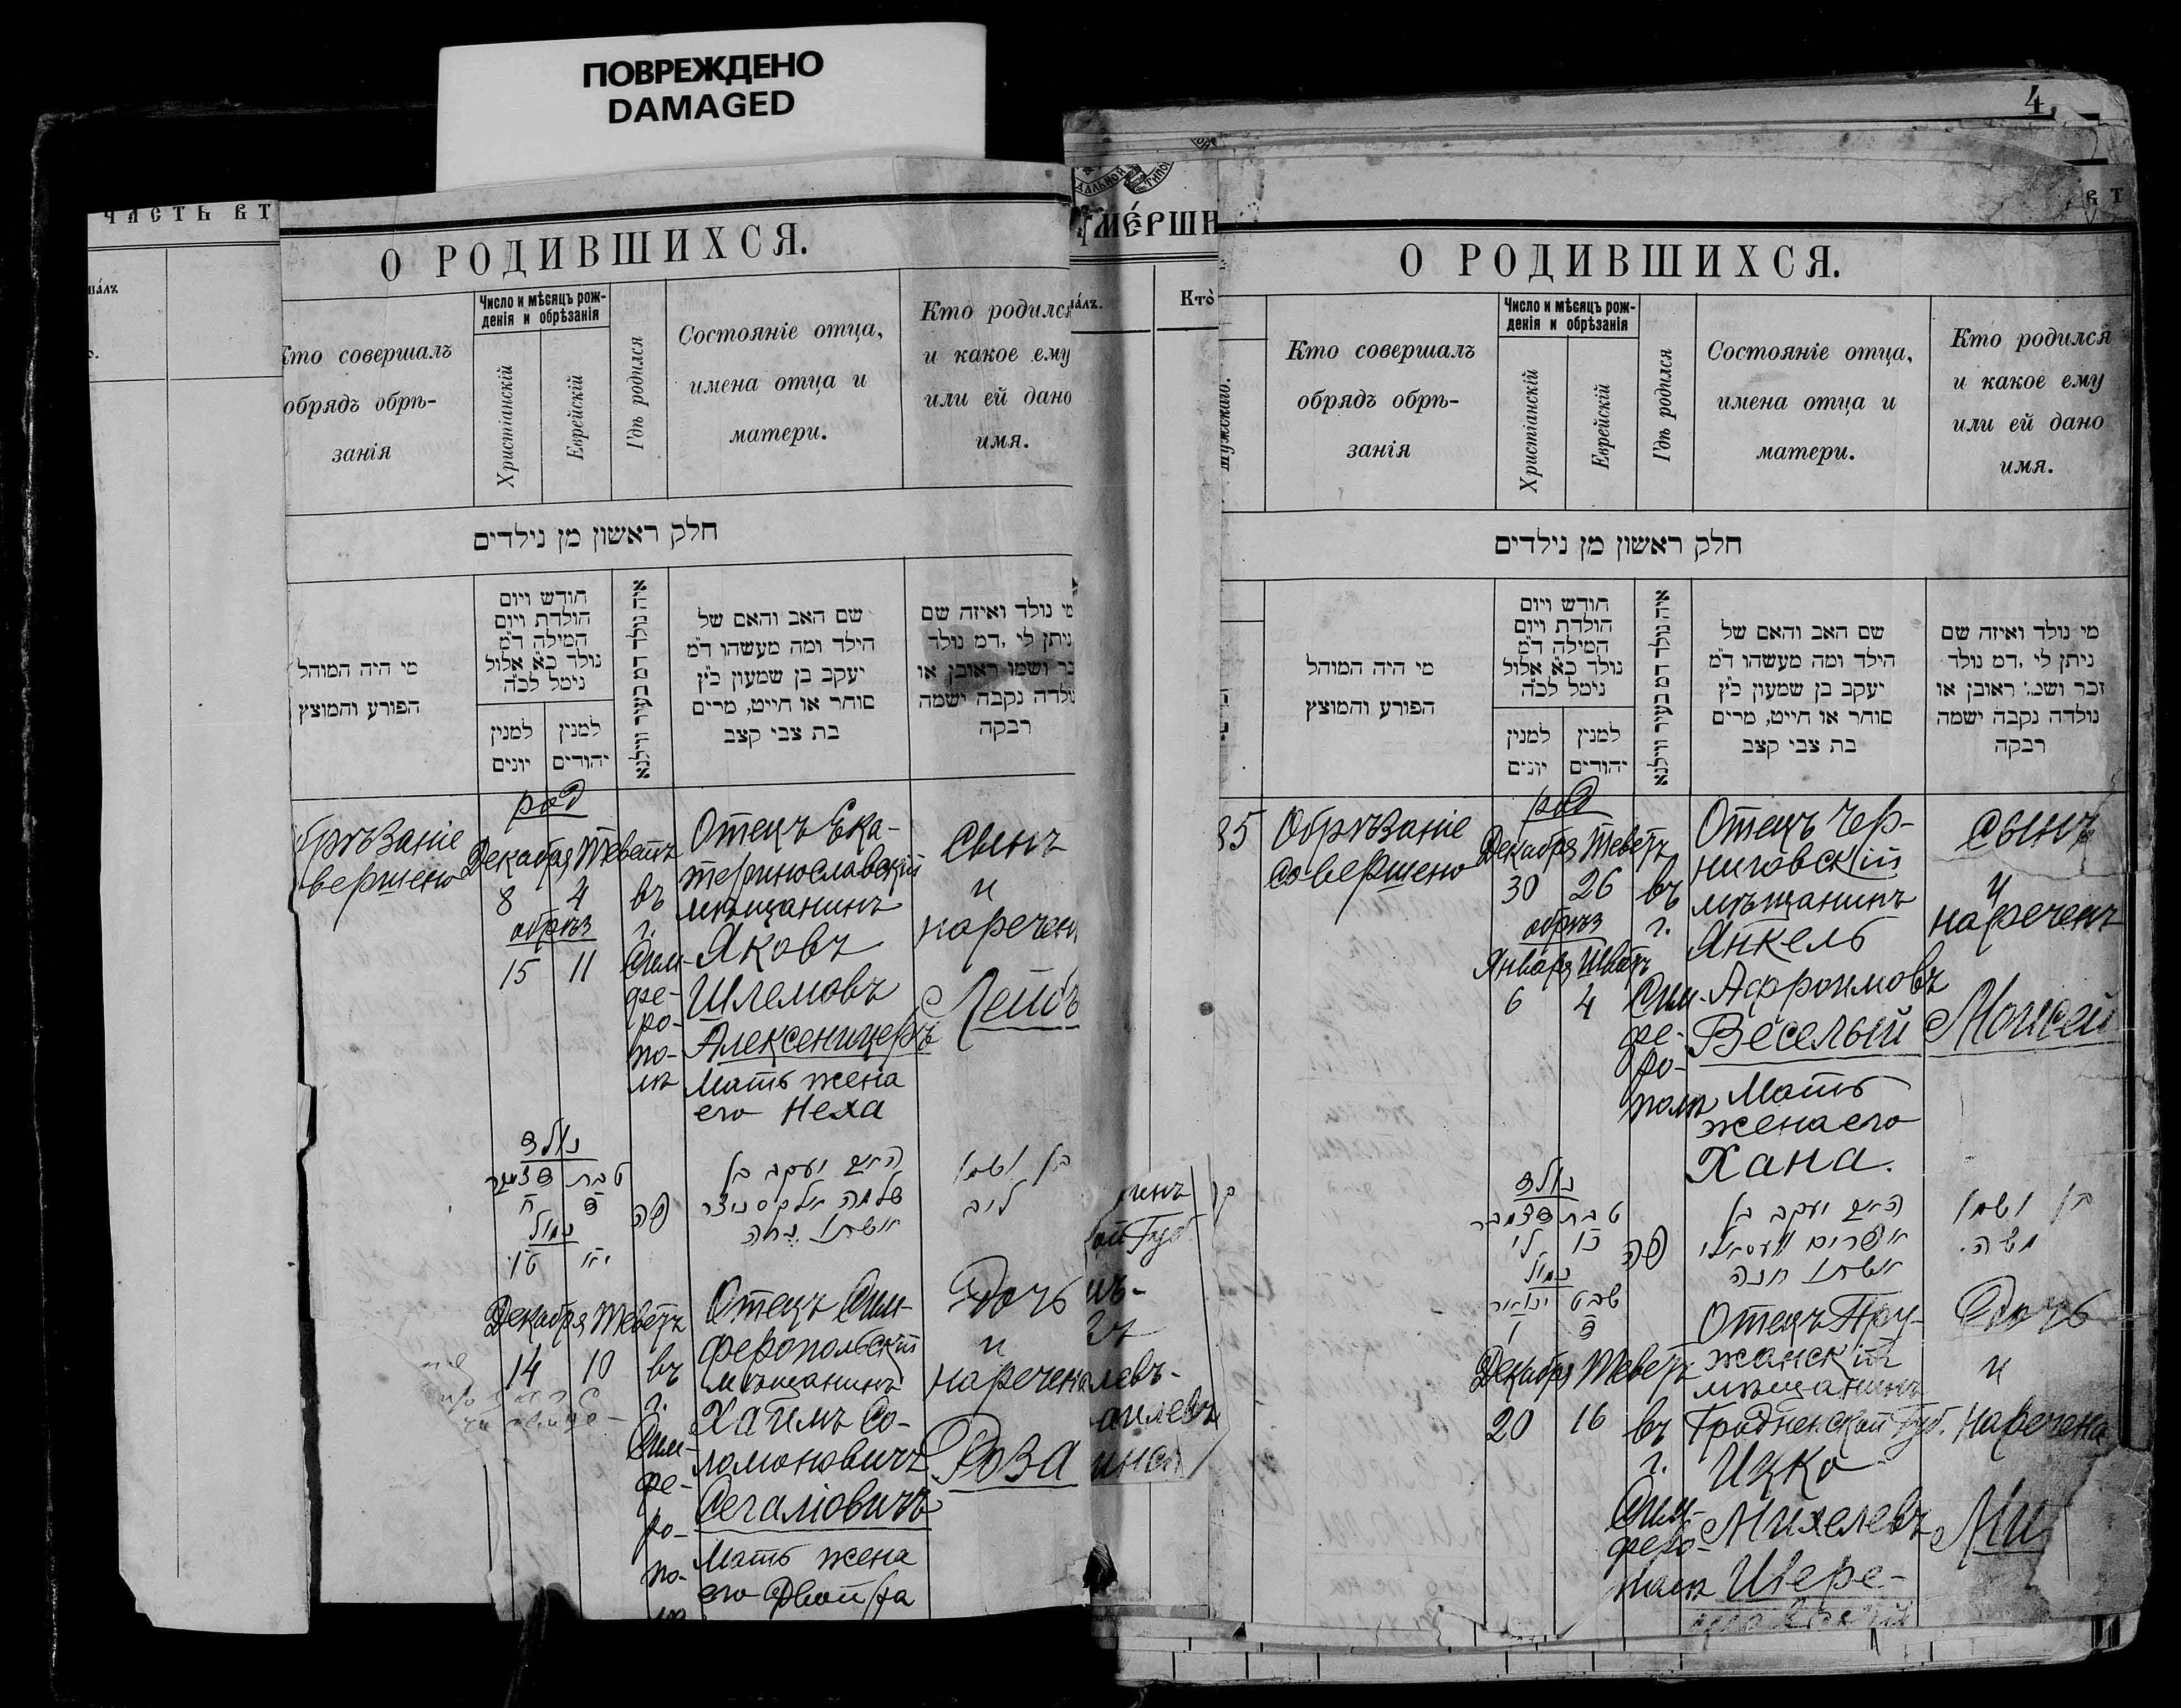 ПОВРЕЖДЕНО
DAMAGED
4
ЧАСТЬ ВТ
О РОДИВШИХСЯ.
Кто совершалъ
обрядъ обрѣ-
занія
Число и мѣсяцъ рож-
денія и обрѣзанія
Христіанскій
Еврейскій
Гдѣ родился
Состояніе отца,
имена отца и
матери.
Кто родился
и какое ему
или ей дано
имя.
חלק ראשון מן נילדים
מי היה המוהל
הפורע והמוצץ
חודש ויום
הולדת ויום
המילה ד״מ
נולד כ״א אלול
נימל לכ״ה
למנין
יונים
למנין
יהודים
איה נולד דמ בעיר ווילנא
שם האב והאם של
הילד ומה מעשהו ד״מ
יעקב בן שמעון כ״ץ
סוחר או חייט, מרים
בת צבי קצב
מי נולד ואיזה שם
ניתן לי ,דמ נולד
זכר ושמו ראובן או
נולדה נקבה ישמה
רבקה
брѣзаніе
вершено
род
Декабря Теветъ
8 4
обрѣз
15 11
въ
г.
Сим-
фе-
ро-
по-
лѣ
Отецъ Ека-
теринославскій
мѣщанинъ
Яковъ
Шлемовъ
Алексеницеръ
Мать жена
его Неха
Сынъ
и
наречен
Лейбъ
נולד
טבת דצמבר
ד ח
נמול
יא טו
פה
האיש יעקב בן
שלמה אלקסניצר
אשתו נחה
בן ושמו
ליב
Декабря Теветъ
14 10
въ
г.
Сим-
фе-
ро-
по-
Отецъ Сим-
феропольскій
мѣщанинъ
Хаимъ Со-
ломоновичъ
Сегаловичъ
Мать жена
его Двойра
Дочь
и
наречена
Роза
МЕ́РШИ
Кто̀
О РОДИВШИХСЯ.
Кто совершалъ
обрядъ обрѣ-
занія
Число и мѣсяцъ рож-
денія и обрѣзанія
Христіанскій
Еврейскій
Гдѣ родился
Состояніе отца,
имена отца и
матери.
Кто родился
и какое ему
или ей дано
имя.
חלק ראשון מן נילדים
מי היה המוהל
הפורע והמוצץ
חודש ויום
הולדת ויום
המילה ד״מ
נולד כ״א אלול
נימל לכ״ה
למנין
יונים
למנין
יהודים
איה נולד דמ בעיר ווילנא
שם האב והאם של
הילד ומה מעשהו ד״מ
יעקב בן שמעון כ״ץ
סוחר או חייט, מרים
בת צבי קצב
מי נולד ואיזה שם
ניתן לי ,דמ נולד
זכר ושמו ראובן או
נולדה נקבה ישמה
רבקה
85
Обрѣзаніе
совершено
род
Декабря Теветъ
30 26
обрѣз
Января Шватъ
6 4
въ
г.
Сим-
фе-
ро-
полѣ
Отецъ Чер-
ниговскій
мѣщанинъ
Янкель
Афроимовъ
Веселый
Мать
жена его
Хана.
Сынъ
и
нареченъ
Моисей
נולד
טבת דצמבר
כו לי
נמול
שבט ינואר
ד ו
פה
האיש יעקב בן
אפרים וועסאלי
אשתו חנה
בן ושמו
משה.
Декабря Теветъ
20 16
въ
г.
Сим-
феро-
полѣ
Отецъ Пру-
жанскій
мѣщанинъ
Гродненской Губ.
Ицко
Михелевъ
Шере-
Дочь
и
наречена
Ми